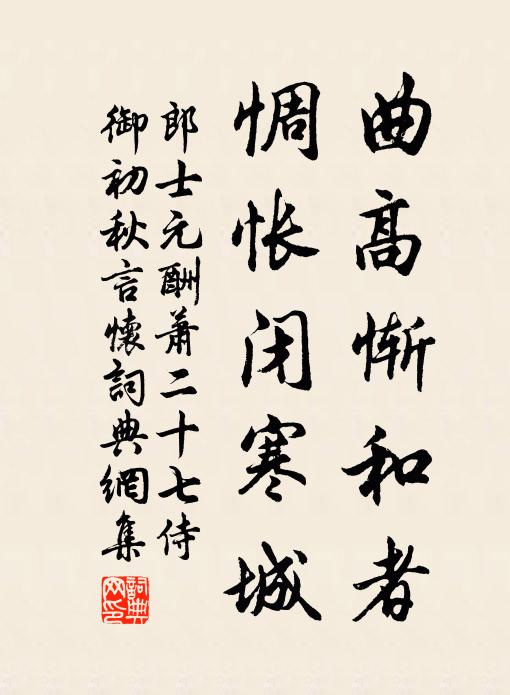 曲高惭和者
惆怅闭寒城
郎士元酬萧二十七侍
御初秋言懷詞典網集
詞典
网印